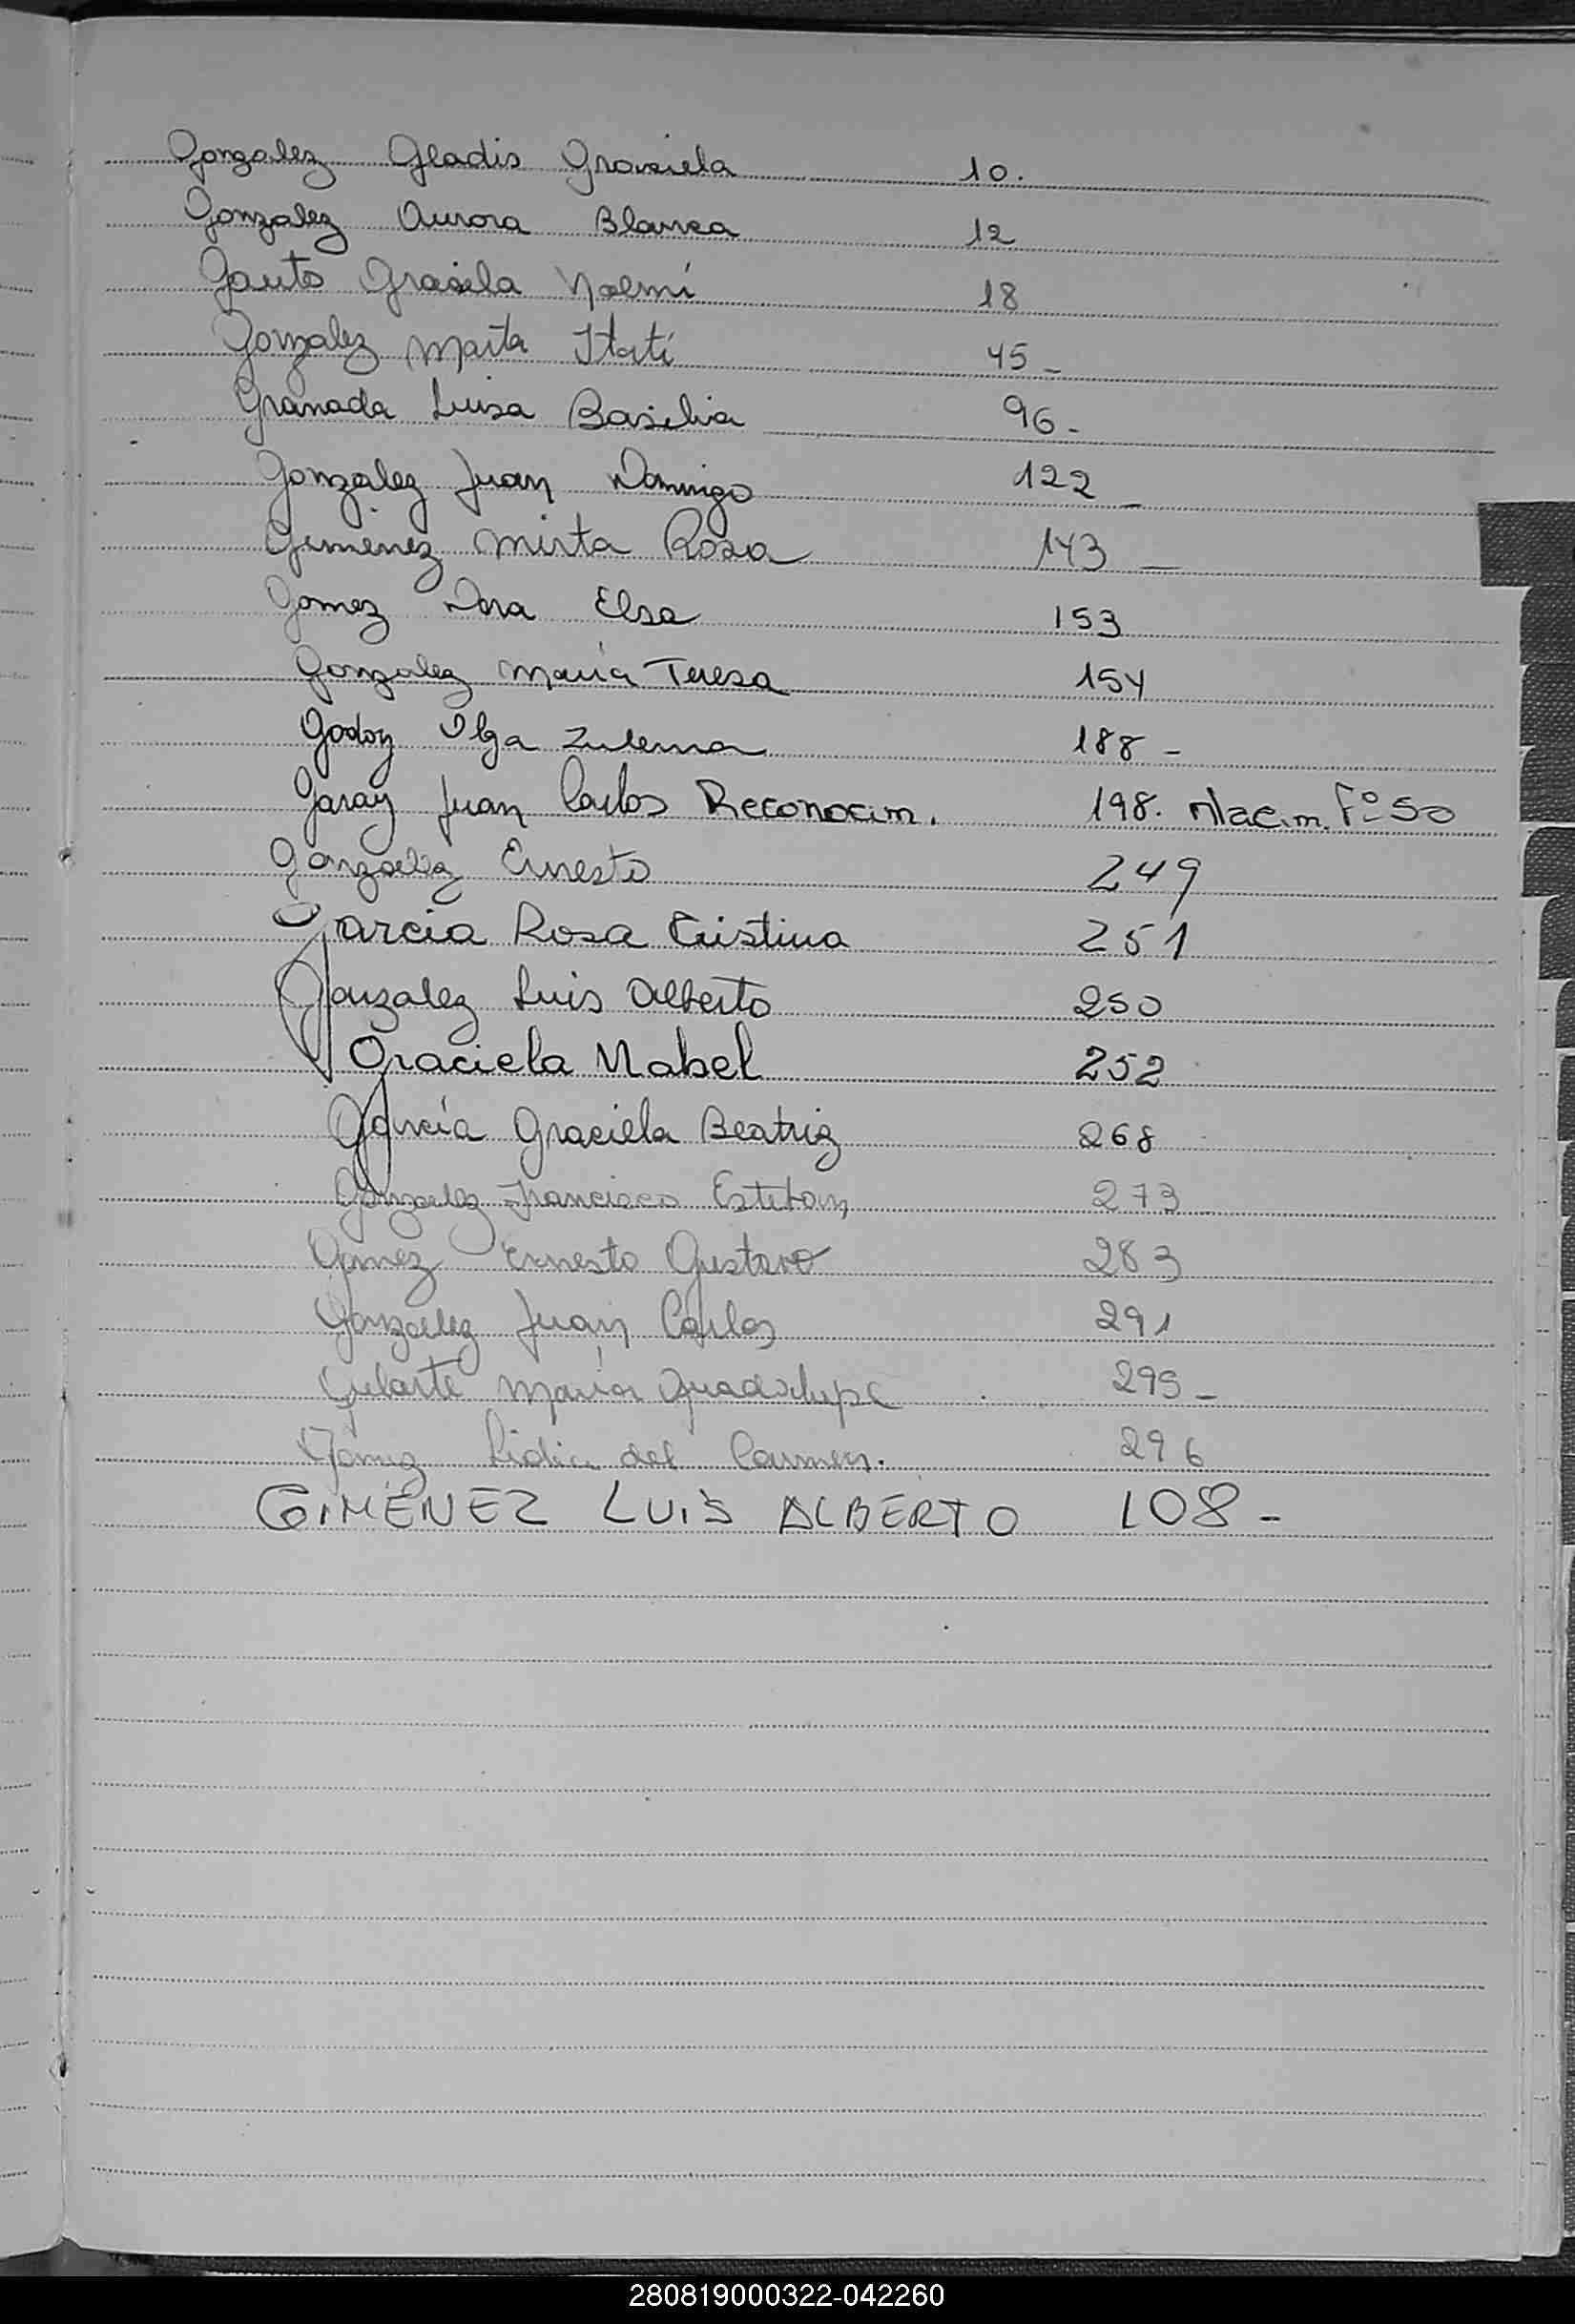 Gonzalez Gladis Graciela 10.
Gonzalez Aurora Blanca 12
Gauto Graciela Noemi 18
Gonzalez Marta Itatí 45 -
Granada Luisa Basilia 96 -
Gonzalez Juan Domingo 122 -
Gimenez Mirta Rosa 143 -
Gomez Dora Elsa 153
Gonzalez María Teresa 154
Godoy Olga Zulema 188 -
Garay Juan Carlos Reconocim. 198. Nacim. Fº 50
Gonzalez Ernesto 249
Garcia Rosa Cristina 251
Gonzalez Luis Alberto 250
Graciela Mabel 252
García Graciela Beatriz 268
Gonzalez Francisco Esteban 273
Gomez Ernesto Gustavo 283
Gonzalez Juan Carlos 291
María Guadalupe 295 -
Gomez Lidia del Carmen. 296
GIMENEZ LUIS ALBERTO 108 -
280819000322-042260